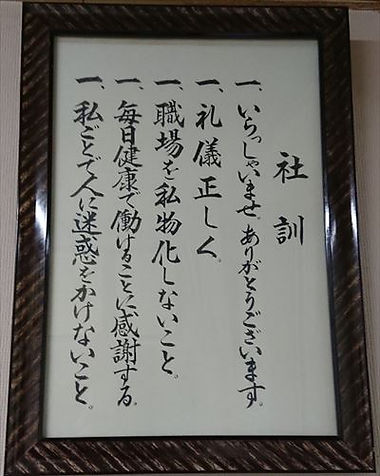 社訓
一、いらっしゃいませ。ありがとうございます。
一、礼儀正しく。
一、職場を私物化しないこと。
一、毎日健康で働けることに感謝する。
一、私ごとで人に迷惑をかけないこと。